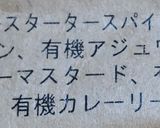 スタータースパイ
ン、有機アジュワ
ーマスタード、
有機カレーリー